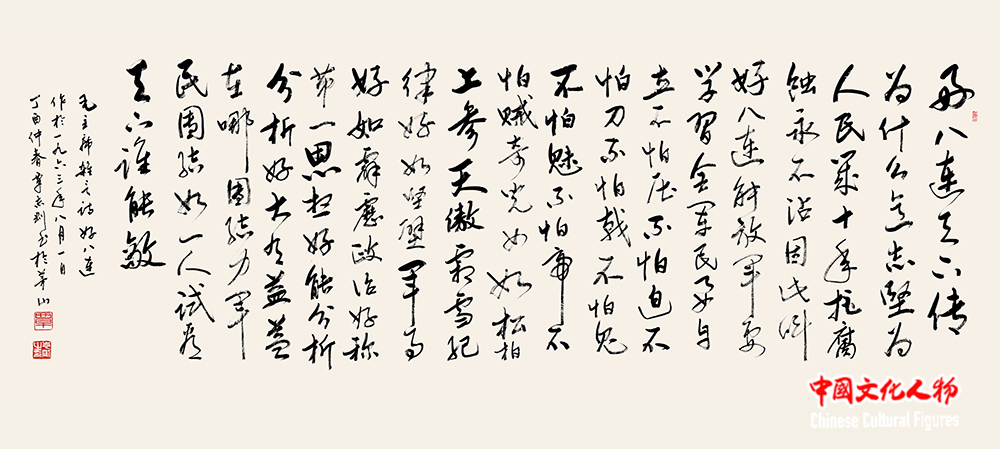 好八连天下传
为什么意志坚为
人民幾十年拒腐
蚀永不沾因此叫
好八连解放军要
学習全军民要自
立不怕压不怕迫不
怕刀不怕戟不怕鬼
不怕魅不怕帝不
怕贼奇儿女如松柏
上参天傲霜雪纪
律好如坚壁军事
好如霹雳政治好称
第一思想好能分析
分析好大有益益
在哪团结力军
民团结如一人试看
天下谁能敌
毛主席杂言诗好八连
作於一九六三年八月一日
丁酉仲春书於茅山
中國文化人物
Chinese Cultural Figures